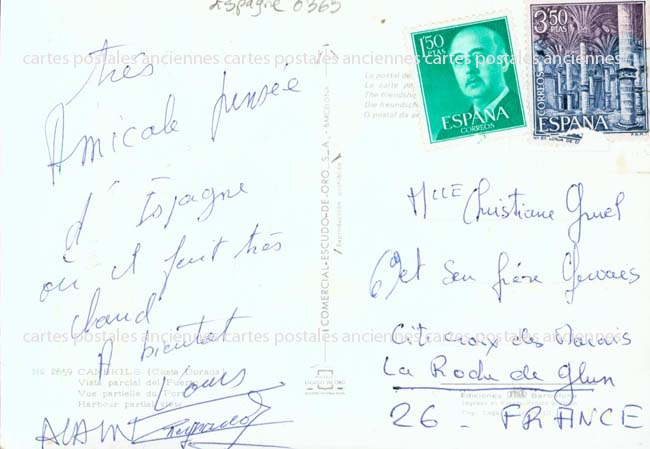 Espagne 0363
cartes postales anciennes cartes postales anciennes cartes postales anciennes
très
Amicale pensée
d'Espagne
où il fait très
chaud
A bientot
Louis
ALAIN
No 2659 CAMBRILS (Costa Dorada)
Vista parcial del Puerto
Vue partielle du Port
Harbour partial view
COMERCIAL-ESCUDO-DE-ORO, S.A. - BARCELONA
Reproducción prohibida
ESCUDO DE ORO
La postal de
La carte
The friendship
Die freundsch
O postal da
1'50
PTAS
ESPAÑA
CORREOS
3,50
PTAS
CORREOS
ESPAÑA
Mlle Christiane
et son frère Gervais
des Marais
La Roche de Glun
26 - FRANCE
Ediciones Barcelona
cartes postales anciennes cartes postales anciennes cartes postales anciennes